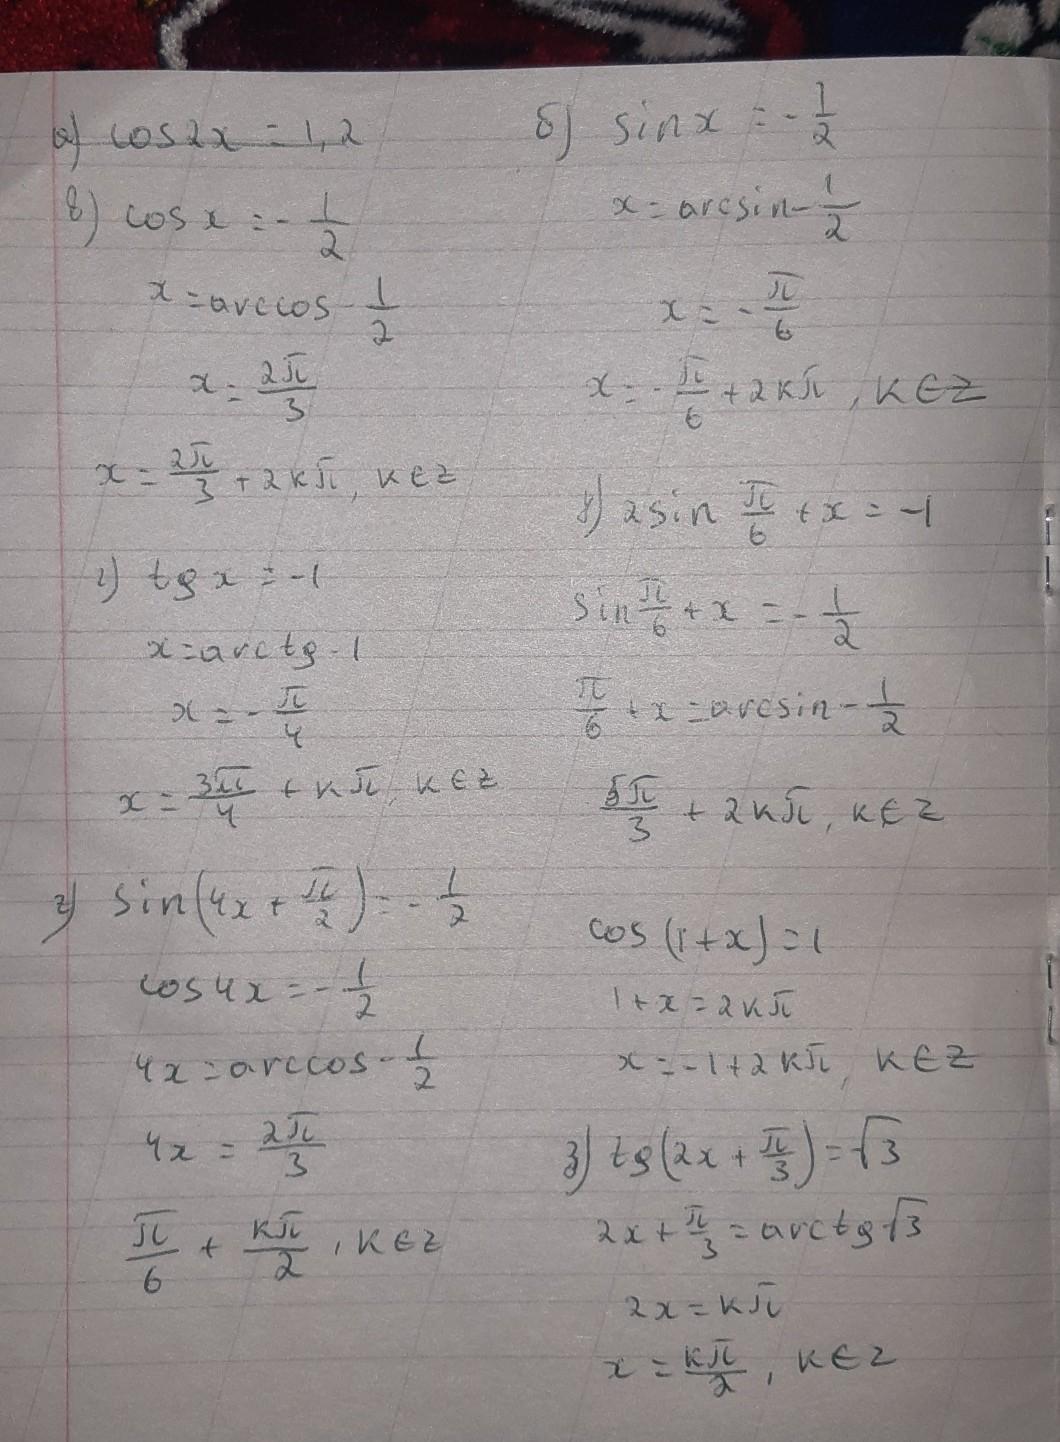 а) cos2x = 1,2
в) cos x = - 1/2
x = arccos - 1/2
x = 2π/3
x = 2π/3 + 2kπ, k ∈ z
г) tg x = -1
x = arctg - 1
x = - π/4
x = 3π/4 + kπ, k ∈ z
sin(4x + π/2) = - 1/2
cos4x = - 1/2
4x = arccos - 1/2
4x = 2π/3
π/6 + kπ/2, k ∈ z
б) sin x = - 1/2
x = arcsin - 1/2
x = - π/6
x = - π/6 + 2kπ, k ∈ z
2sin π/6 + x = -1
sin π/6 + x = - 1/2
π/6 + x = arcsin - 1/2
5π/3 + 2kπ, k ∈ z
cos (1+x) = 1
1+x = 2kπ
x = -1+2kπ, k ∈ z
з) tg(2x + π/3) = √3
2x + π/3 = arctg√3
2x = kπ
x = kπ/2, k ∈ z